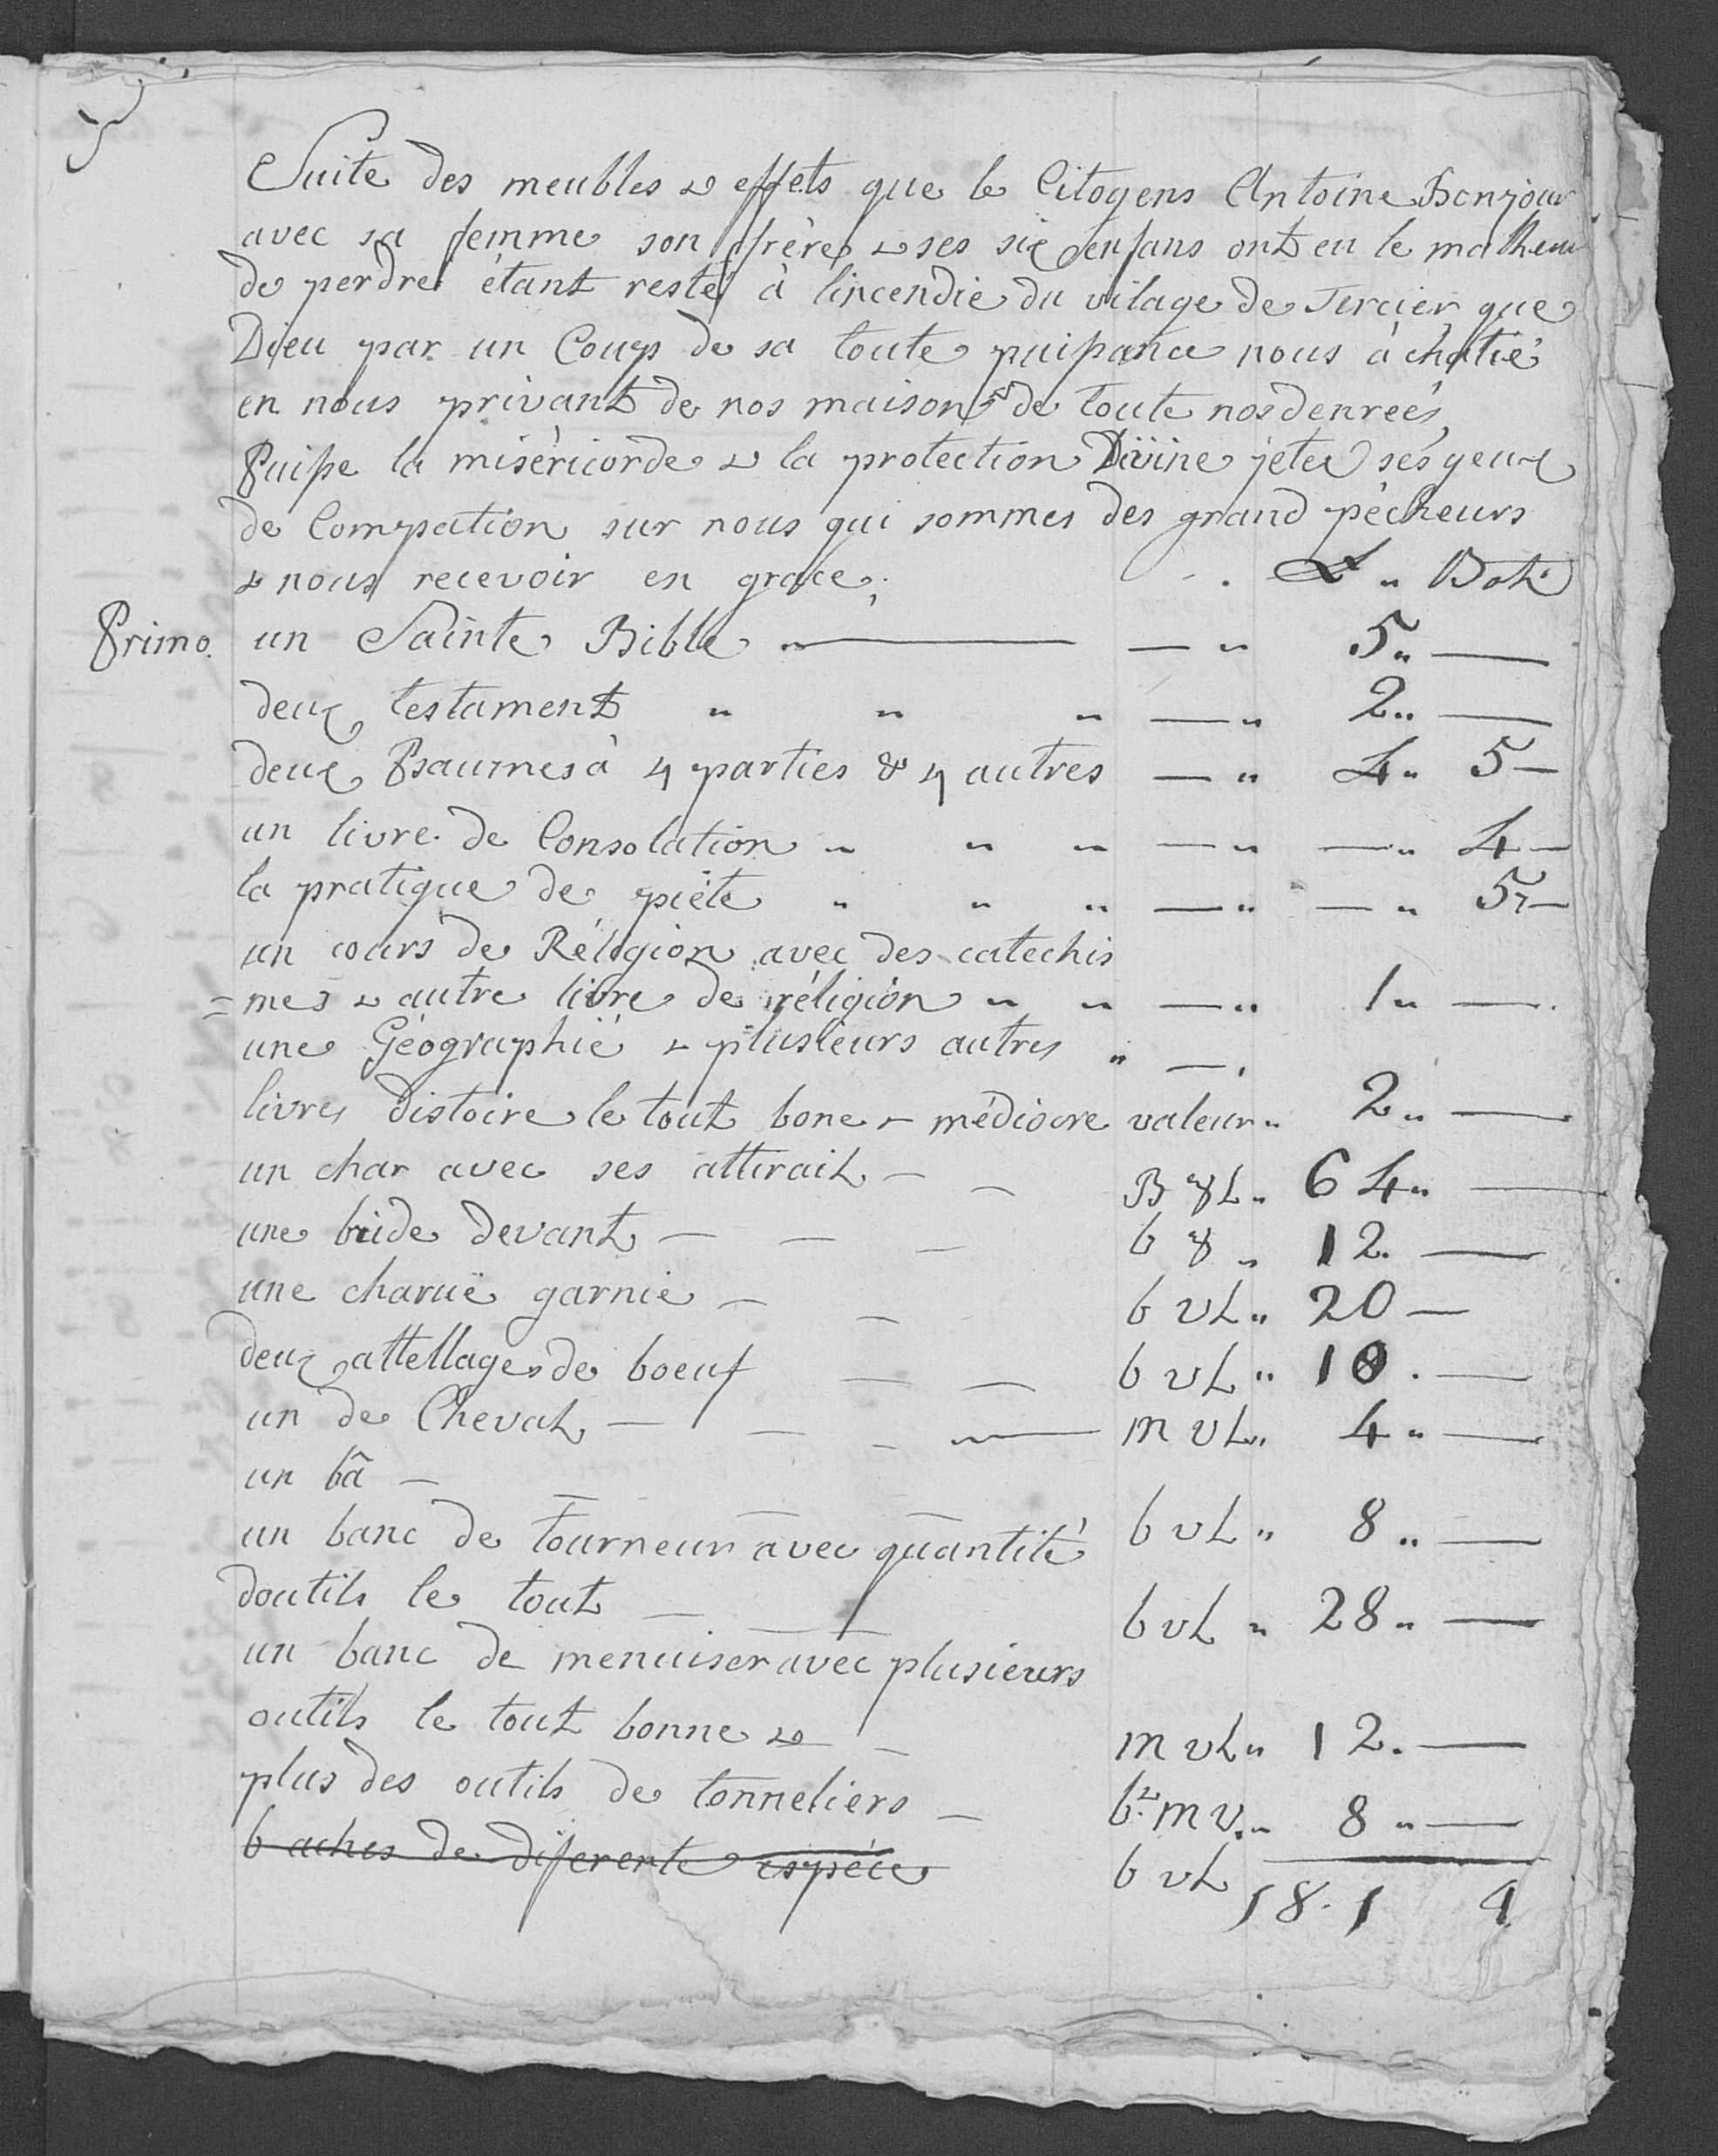 Suite des meubles & effets que le Citoyens Antoine Bonjour
avec sa femme son frère & ses six enfans ont eu le malheur
de perdre étant resté à lincendie du vilage de Tercier que
Dieu par un Coup de sa toute puissance nous à châtié
en nous privant de nos maison & de toute nos denreés,
Puisse la miséricorde & la protection Divine jeter ses yeux
de Compation sur nous qui sommes des grand pécheurs
& nous recevoir en grace; L " Batz
Primo. un Sainte Bible " — — " 5 " —
deux testament " " " — " 2 " —
deux Psaumes à 4 parties & 4 autres — " 4 " 5 —
un livre de Consolation " " " — " — " 4 —
la pratique de piété " " " — " — " 5 —
un cours de Réligion avec des catechis
= mes & autre livre de réligion " " — " 1 " —
une Géographié & plusieurs autres " —
livres distoire le tout bone & médiocre valeur " 2 " —
un char avec ses attirail — — B & L " 64 " —
une bride devant — — — b & " 12. —
une charuë garnie — — b vL " 20 —
deux attellages de boeuf — — b vL " 18. —
un de Cheval — — — — m vL " 4 " —
un bâ — — — — b vL " 8 " —
un banc de tourneur avec quantité
doutils le tout — — b vL " 28 " —
un banc de menuiser avec plusieurs
outils le tout bonne & — m vL " 12. —
plus des outils de tonneliers — b & m v. " 8 " —
b aches de diferente espéce b vL
18.1 4